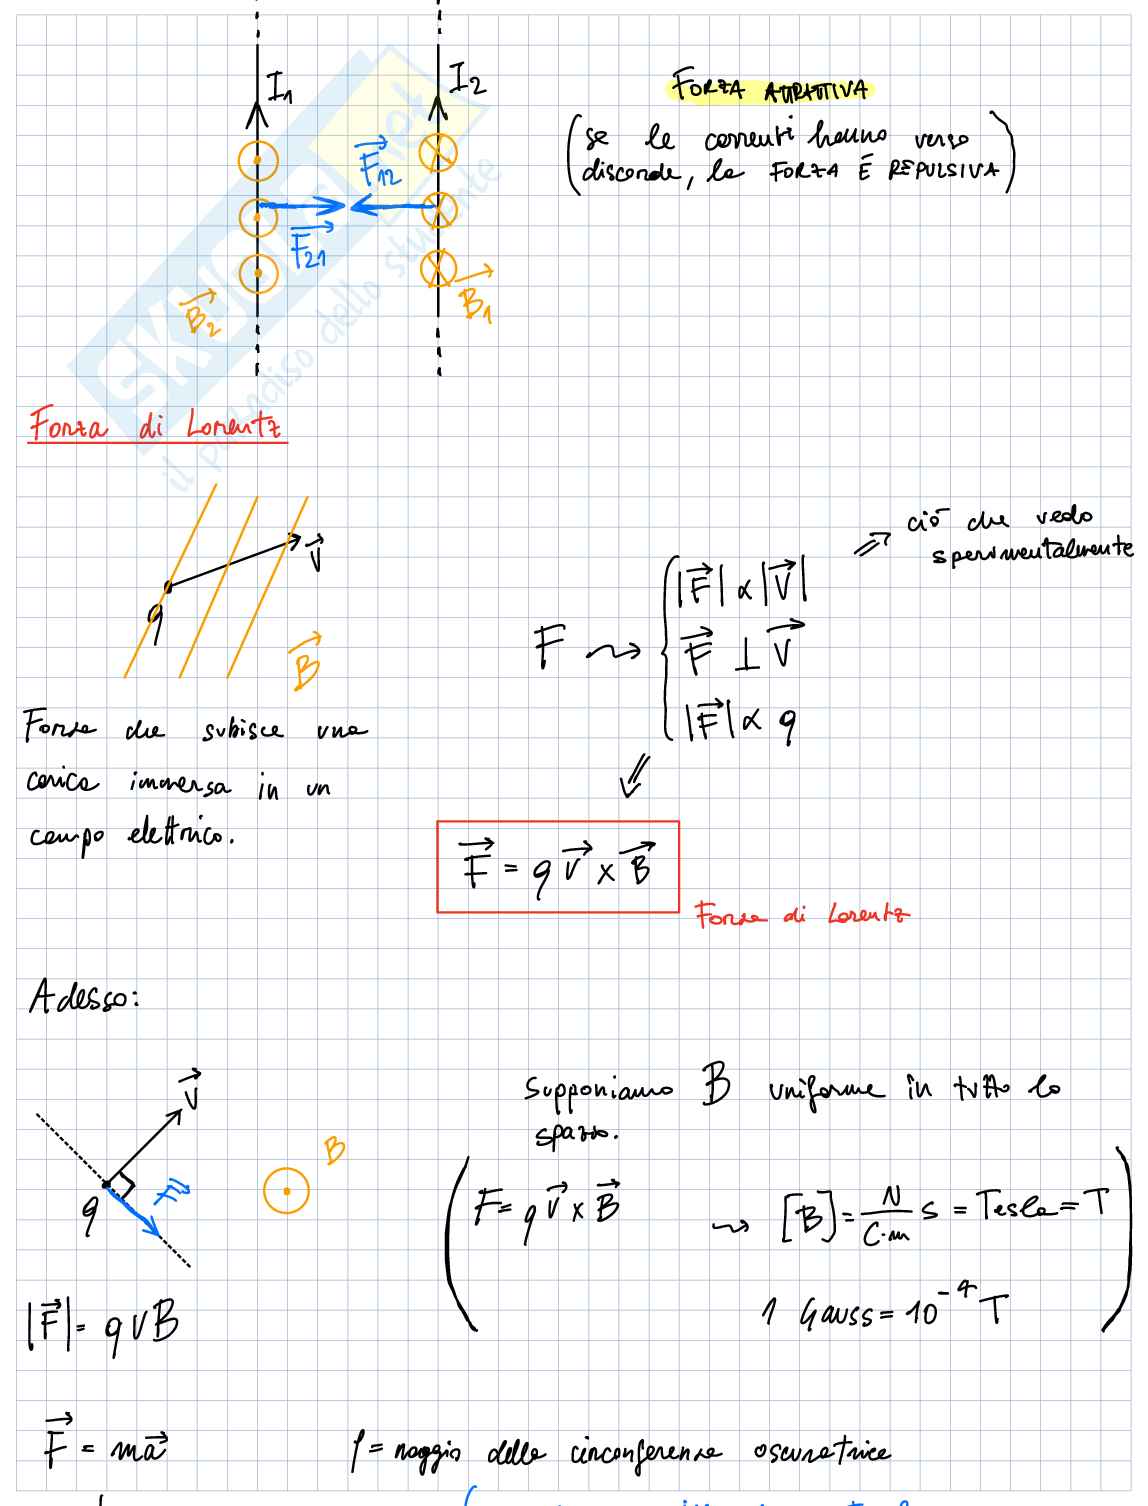 I₁
I₂
FORZA ATTRATTIVA
(se le correnti hanno verso
discorde, la FORZA È REPULSIVA)
F₁₂
F₂₁
B₂
B₁
SKUOLA.net
il paradiso dello studente
Forza di Lorentz
ciò che vedo
sperimentalmente
V
q
B
|F| ∝ |V|
F ⇝ { F ⊥ V
|F| ∝ q
Forza che subisce una
carica immersa in un
campo elettrico.
F = q v × B
Forza di Lorentz
Adesso:
V
F
q
B
Supponiamo B uniforme in tutto lo
spazio.
F = q v × B ⇝ [B] = N/(C·m) s = Tesla = T
1 Gauss = 10⁻⁴ T
|F| = q v B
F = m a
ρ = raggio della circonferenza oscuratrice